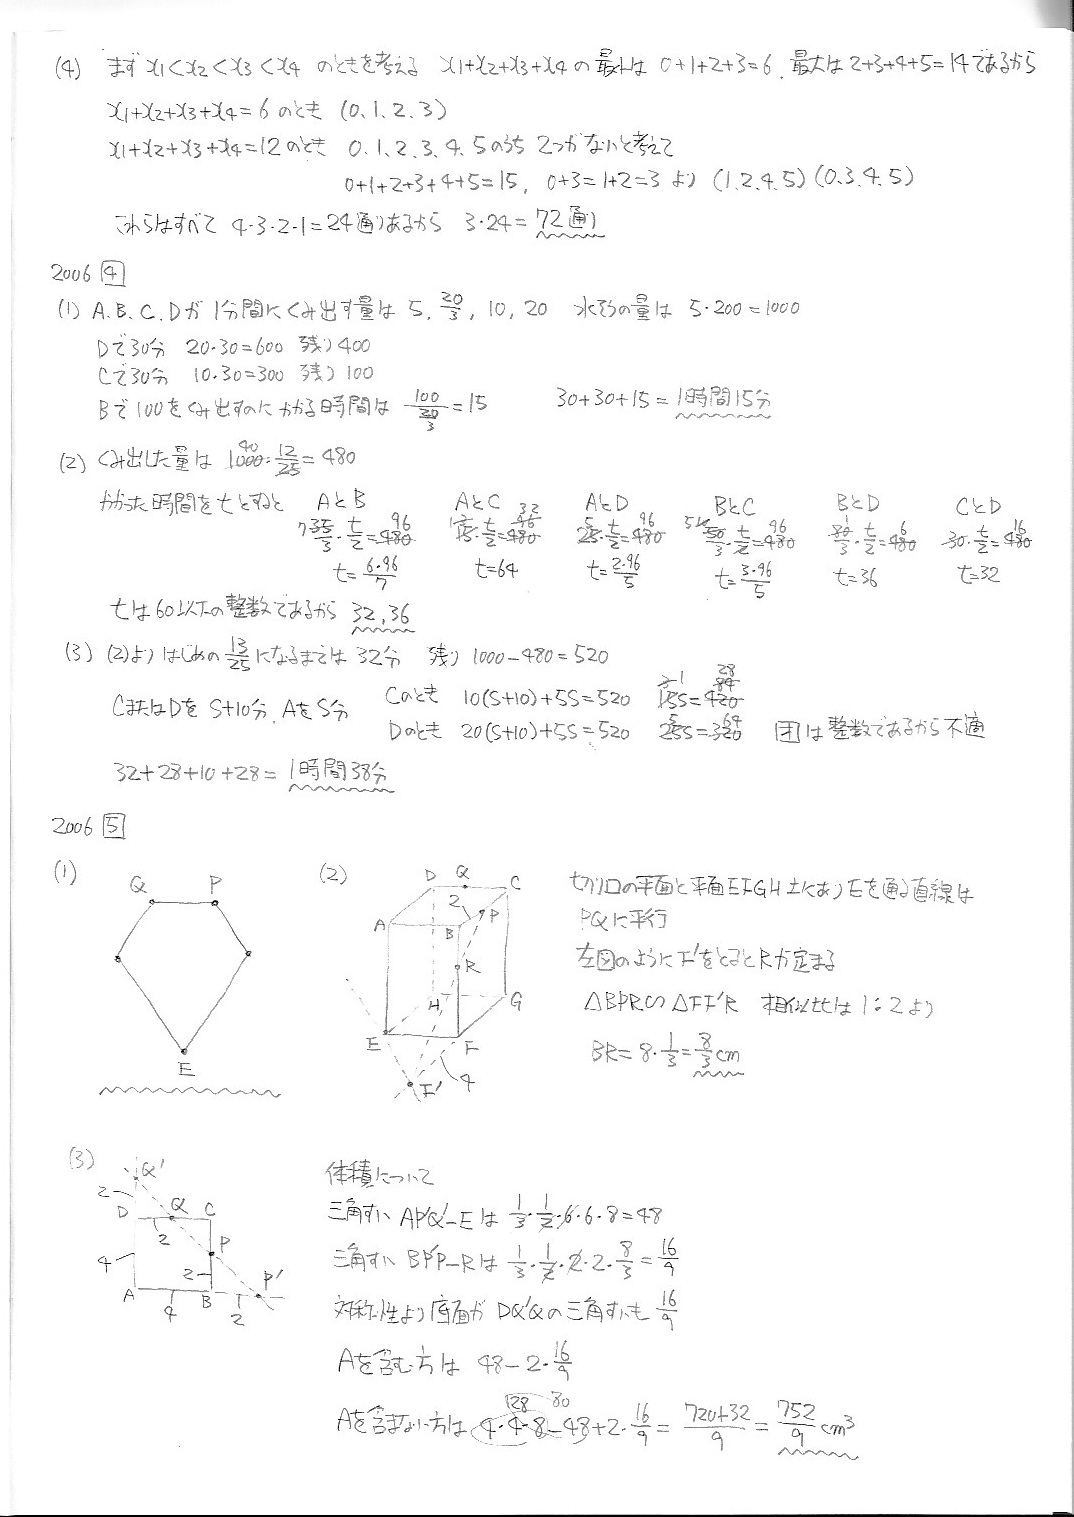 (4) まず x1<x2<x3<x4 のときを考える x1+x2+x3+x4 の最小は 0+1+2+3=6, 最大は 2+3+4+5=14であるから
x1+x2+x3+x4=6のとき (0,1,2,3)
x1+x2+x3+x4=12のとき 0,1,2,3,4,5のうち2つがないと考えて
0+1+2+3+4+5=15, 0+3=1+2=3より (1,2,4,5)(0,3,4,5)
これらはすべて 4・3・2・1=24通りあるから 3・24=72通り
2006 4
(1) A.B.C.Dが1分間にくみ出す量は 5, 20/3, 10, 20 水そうの量は 5・200=1000
Dで30分 20・30=600 残り400
Cで30分 10・30=300 残り100
Bで100をくみ出すのにかかる時間は 100/(20/3)=15 30+30+15=1時間15分
(2) くみ出した量は 1000・12/25=480 40
かかった時間をtとすると AとB AとC AとD BとC BとD CとD
35/3・t/2=480 15・t/2=480 25・t/2=480 50/3・t/2=480 80/3・t/2=480 30・t/2=480
t=6・96/7 t=64 t=2・96/5 t=3・96/5 t=36 t=32
tは60以下の整数であるから 32,36
(3) (2)より はじめの13/25になるまでは32分 残り 1000-480=520
CまたはDをS+10分, AをS分 Cのとき 10(S+10)+5S=520 15S=420 28
Dのとき 20(S+10)+5S=520 25S=320 64 団は整数であるから不適
32+28+10+28=1時間38分
2006 5
(1) Q P E
(2) D Q C A 2 B P R H G E F F' 4
切り口の平面と平面EFGH上にありEを通る直線は
PQに平行
左図のようにF'をとるとRが定まる
△BPR∽△FF'R 相似比は1:2より
BR=8・1/3=8/3cm
(3) Q' 2 D Q C 2 P 4 2 P' A 4 B 2
体積について
三角すい AP'Q'-Eは 1/3・1/2・6・6・8=48
三角すい BP'P-Rは 1/3・1/2・2・2・8/3=16/9
対称性より底面が DQ'Qの三角すいも 16/9
Aを含む方は 48-2・16/9
128 80
Aを含まない方は 4・4・8-48+2・16/9=(720+32)/9=752/9 cm³